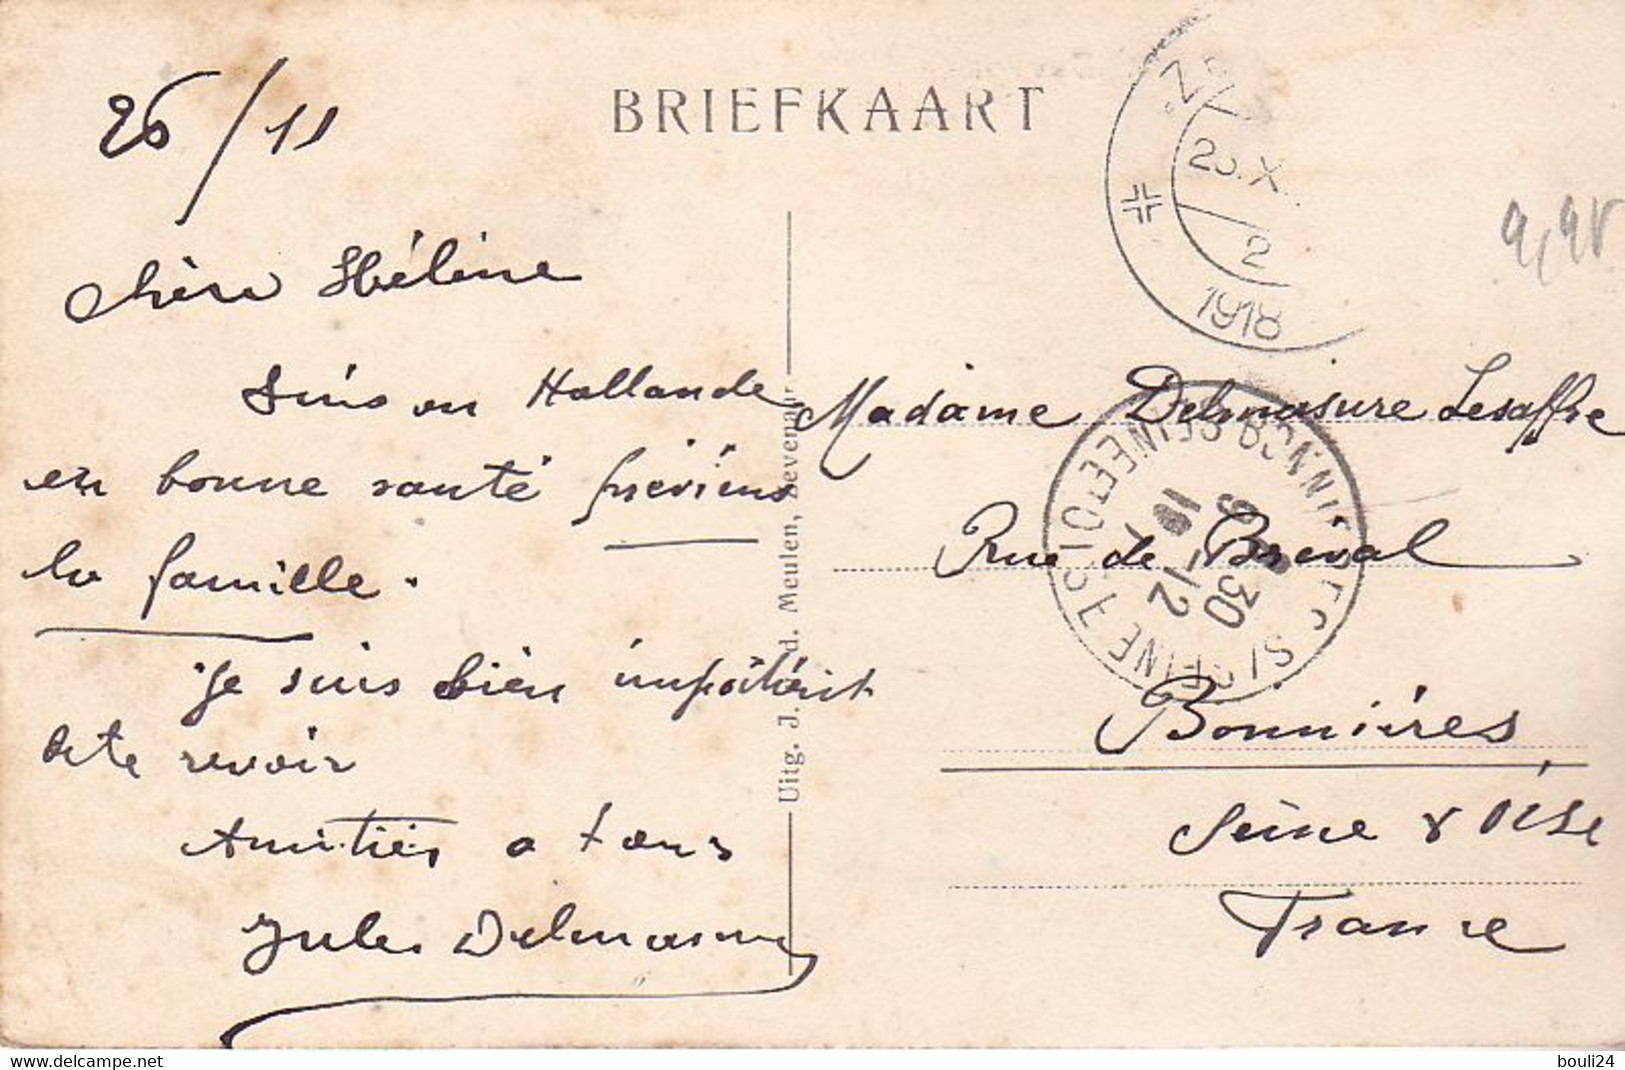 26/11
BRIEFKAART
25.X
2
1918
Chère Hélène
Suis en Hollande
en bonne santé préviens
la famille.
je suis bien impatient
de te revoir
Amitiés a tous
Jules Delmasure
Uitg. J. d. Meulen, Zevenaar
Madame Delmasure Lesaffre
Rue de Bréval
Bonnières
Seine & Oise
France
BONNIERES S/SEINE
SEINE ET OISE
9 30
12
bouli24